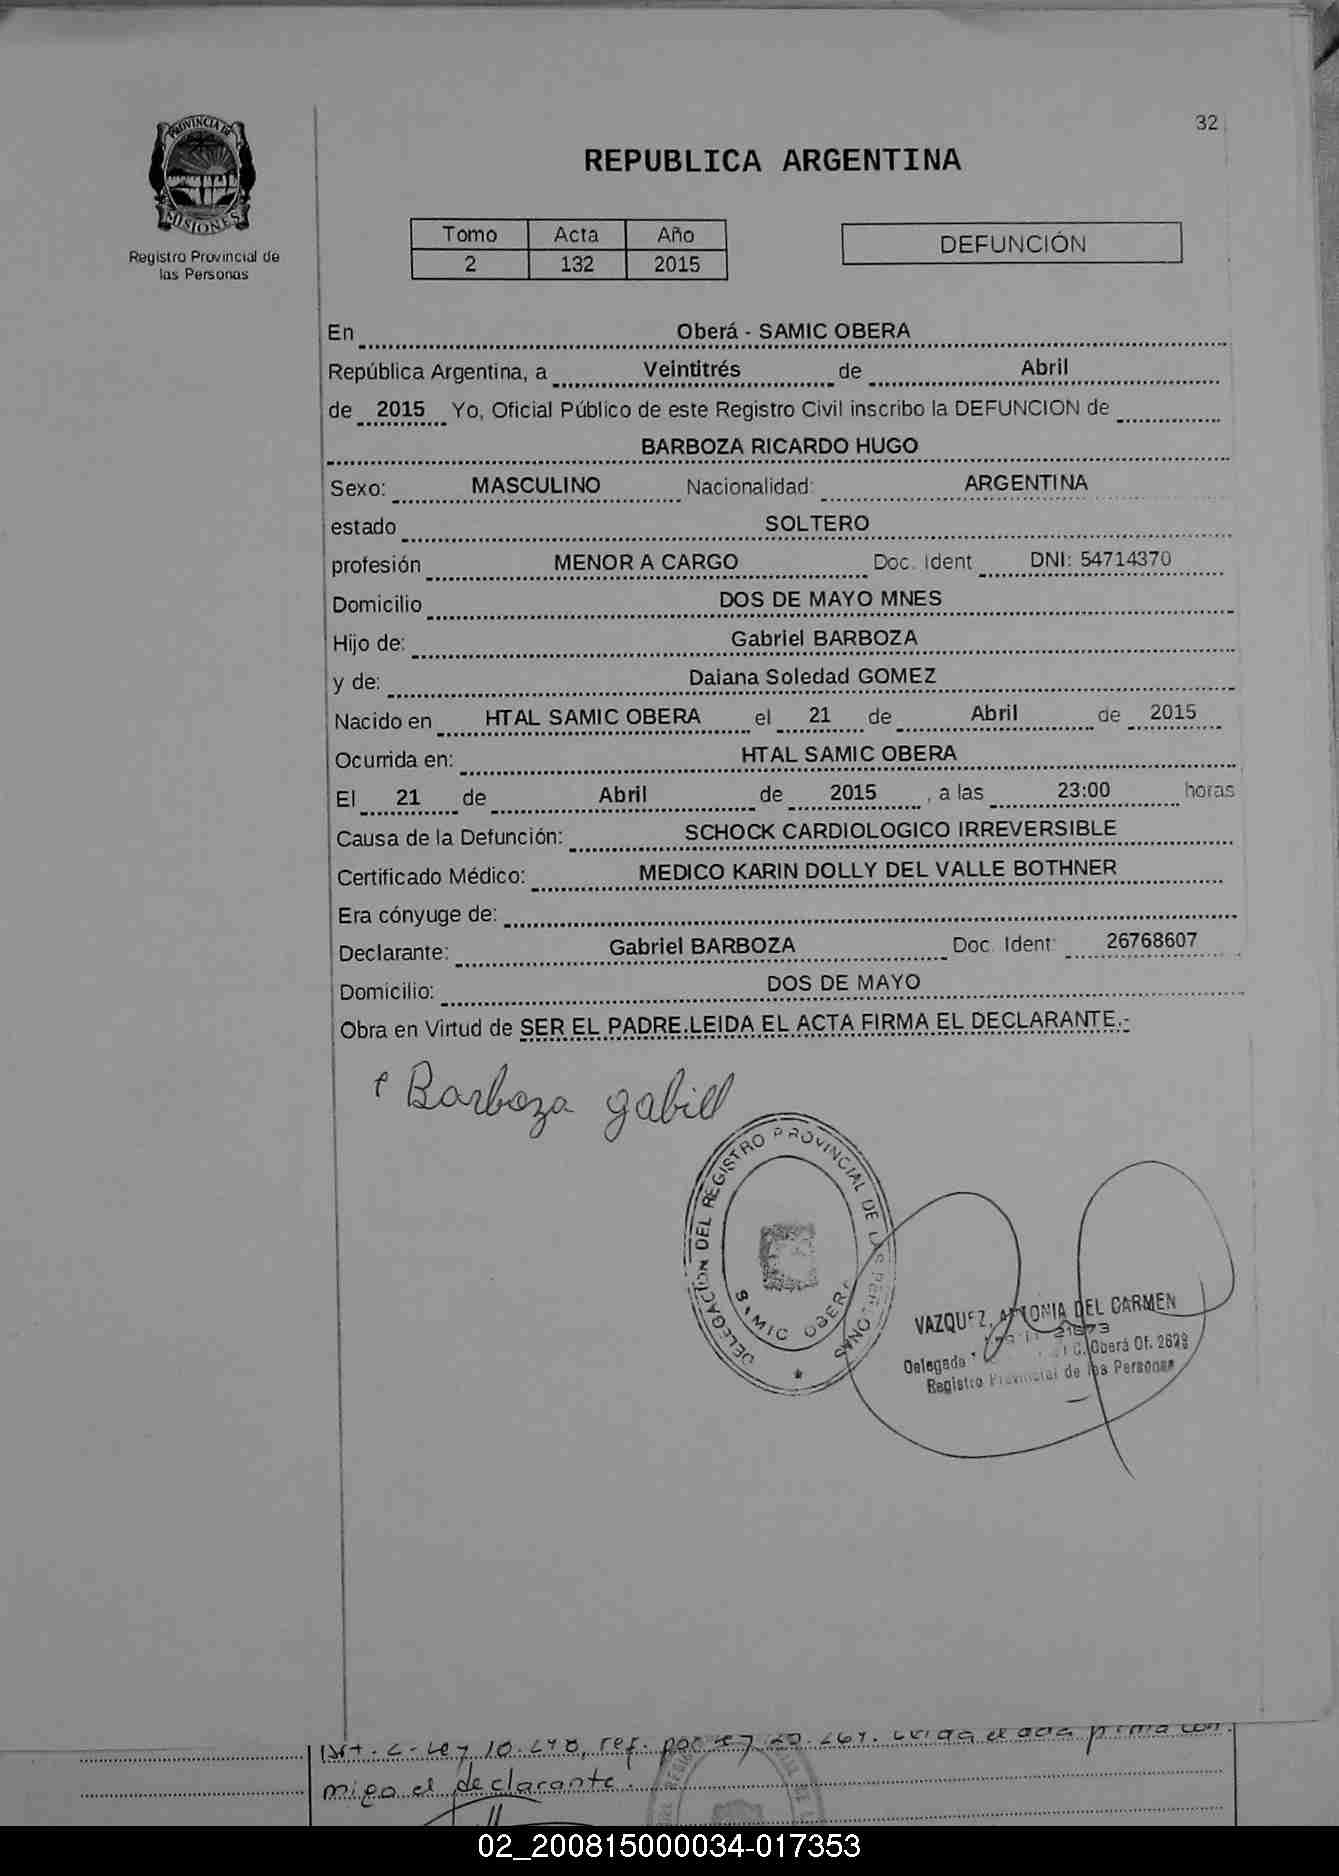 32
PROVINCIA DE
MISIONES
Registro Provincial de
las Personas
REPUBLICA ARGENTINA
Tomo Acta Año
2 132 2015
DEFUNCIÓN
En Oberá - SAMIC OBERA
República Argentina, a Veintitrés de Abril
de 2015 Yo, Oficial Público de este Registro Civil inscribo la DEFUNCION de
BARBOZA RICARDO HUGO
Sexo: MASCULINO Nacionalidad: ARGENTINA
estado SOLTERO
profesión MENOR A CARGO Doc. Ident DNI: 54714370
Domicilio DOS DE MAYO MNES
Hijo de: Gabriel BARBOZA
y de: Daiana Soledad GOMEZ
Nacido en HTAL SAMIC OBERA el 21 de Abril de 2015
Ocurrida en: HTAL SAMIC OBERA
El 21 de Abril de 2015 , a las 23:00 horas
Causa de la Defunción: SCHOCK CARDIOLOGICO IRREVERSIBLE
Certificado Médico: MEDICO KARIN DOLLY DEL VALLE BOTHNER
Era cónyuge de:
Declarante: Gabriel BARBOZA Doc. Ident: 26768607
Domicilio: DOS DE MAYO
Obra en Virtud de SER EL PADRE.LEIDA EL ACTA FIRMA EL DECLARANTE.-
Barboza
DELEGACION DEL REGISTRO PROVINCIAL DE LAS PERSONAS
SAMIC OBERA
VAZQUEZ, ANTONIA DEL CARMEN
21673
Delegada Oberá Of. 2629
Registro Provincial de las Personas
ref. por
migo el declarante.
02_200815000034-017353